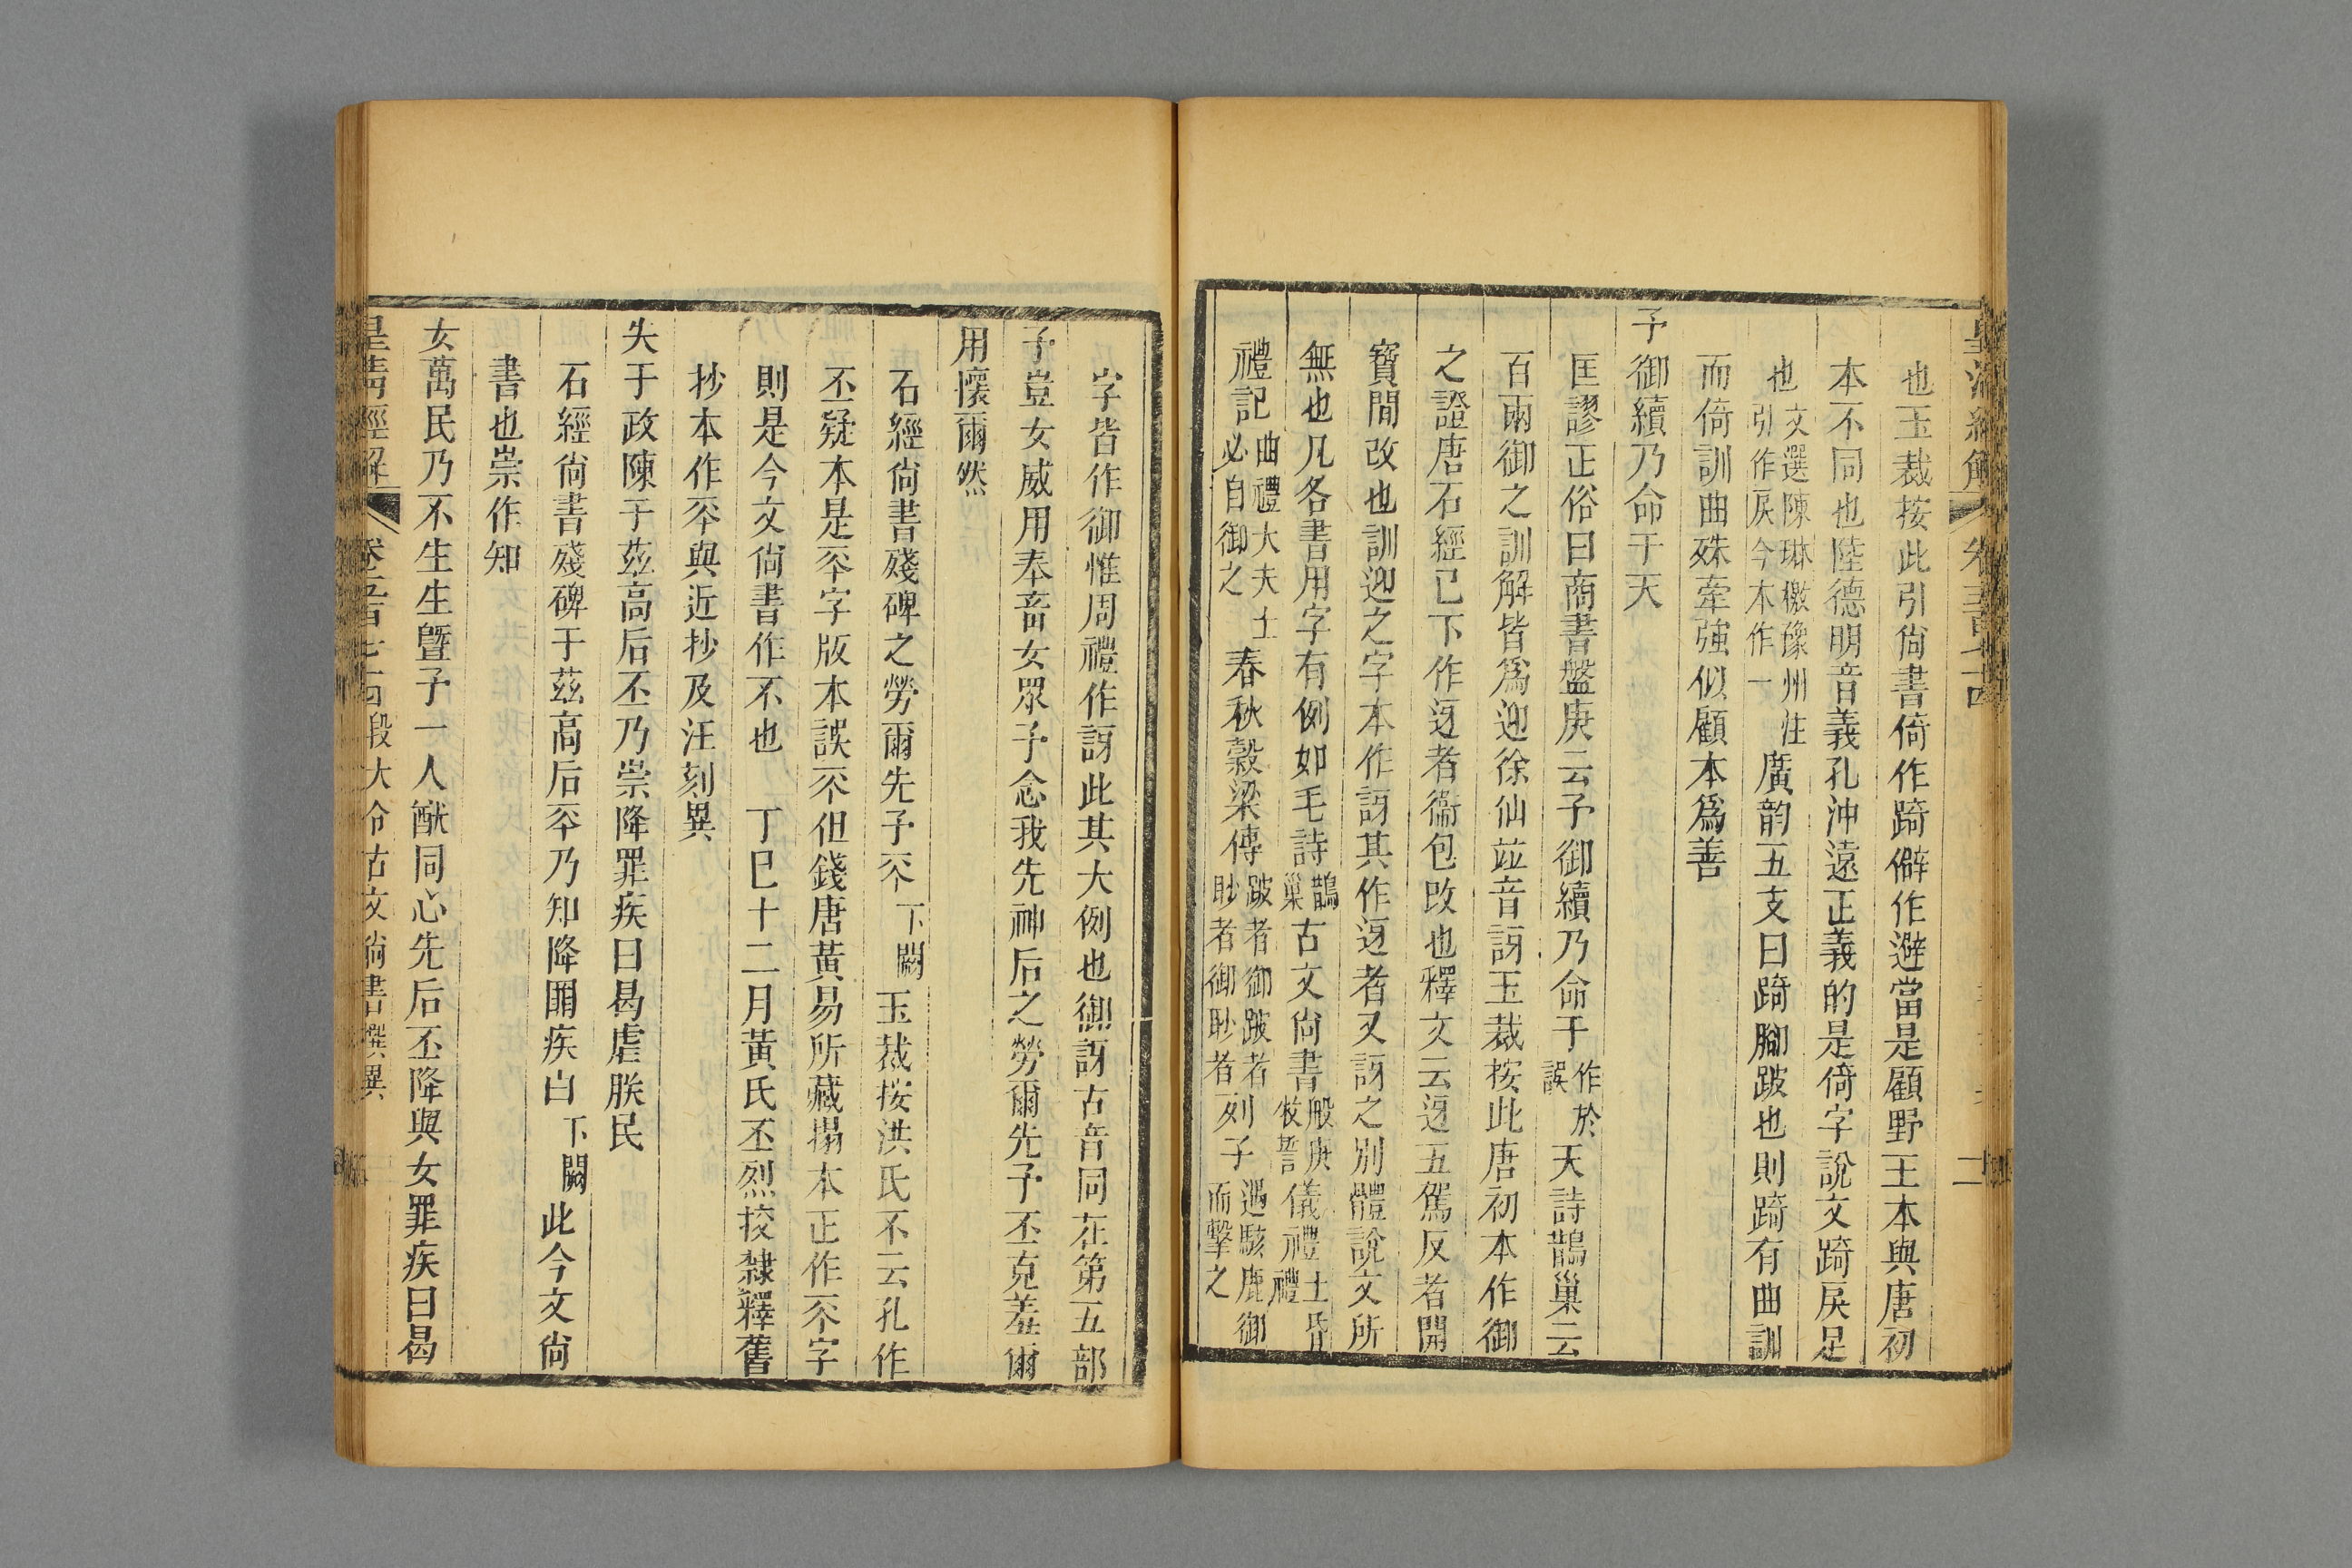 也玉裁按此引尙書倚作踦僻作避當是顧野王本與唐初
本不同也陸德明音義孔沖遠正義的是倚字說文踦戾足
也文選陳琳檄豫州注引作戾今本作一廣韵五支曰踦腳跛也則踦有曲訓
而倚訓曲殊牽強似顧本爲善
予御續乃命于天
匡謬正俗曰商書盤庚云予御續乃命于作於誤天詩鵲巢云
百兩御之訓解皆爲迎徐仙竝音訝玉裁按此唐初本作御
之證唐石經已下作迓者衞包改也釋文云迓五駕反者開
寶閒改也訓迎之字本作訝其作迓者又訝之別體說文所
無也凡各書用字有例如毛詩鵲巢古文尙書般庚牧誓儀禮士昏禮
禮記曲禮大夫士必自御之春秋榖梁傳跛者御跛者眇者御眇者列子遇駭鹿御而擊之
字皆作御惟周禮作訝此其大例也御訝古音同在第五部
予豈女威用奉畜女眾予念我先神后之勞爾先予丕克羞爾
用懷爾然
石經尙書殘碑之勞爾先予不下闕玉裁按洪氏不云孔作
丕疑本是丕字版本誤不但錢唐黃易所藏搨本正作不字
則是今文尙書作不也　丁巳十二月黃氏丕烈挍隸釋舊
抄本作㔻與近抄及汪刻異
失于政陳于茲高后丕乃崇降罪疾曰曷虐朕民
石經尙書殘碑于茲高后㔻乃知降疾曰下闕此今文尙
書也崇作知
女萬民乃不生生曁予一人猷同心先后丕降與女罪疾曰曷
皇清經解　卷五百七十四　段大令古文尙書撰異